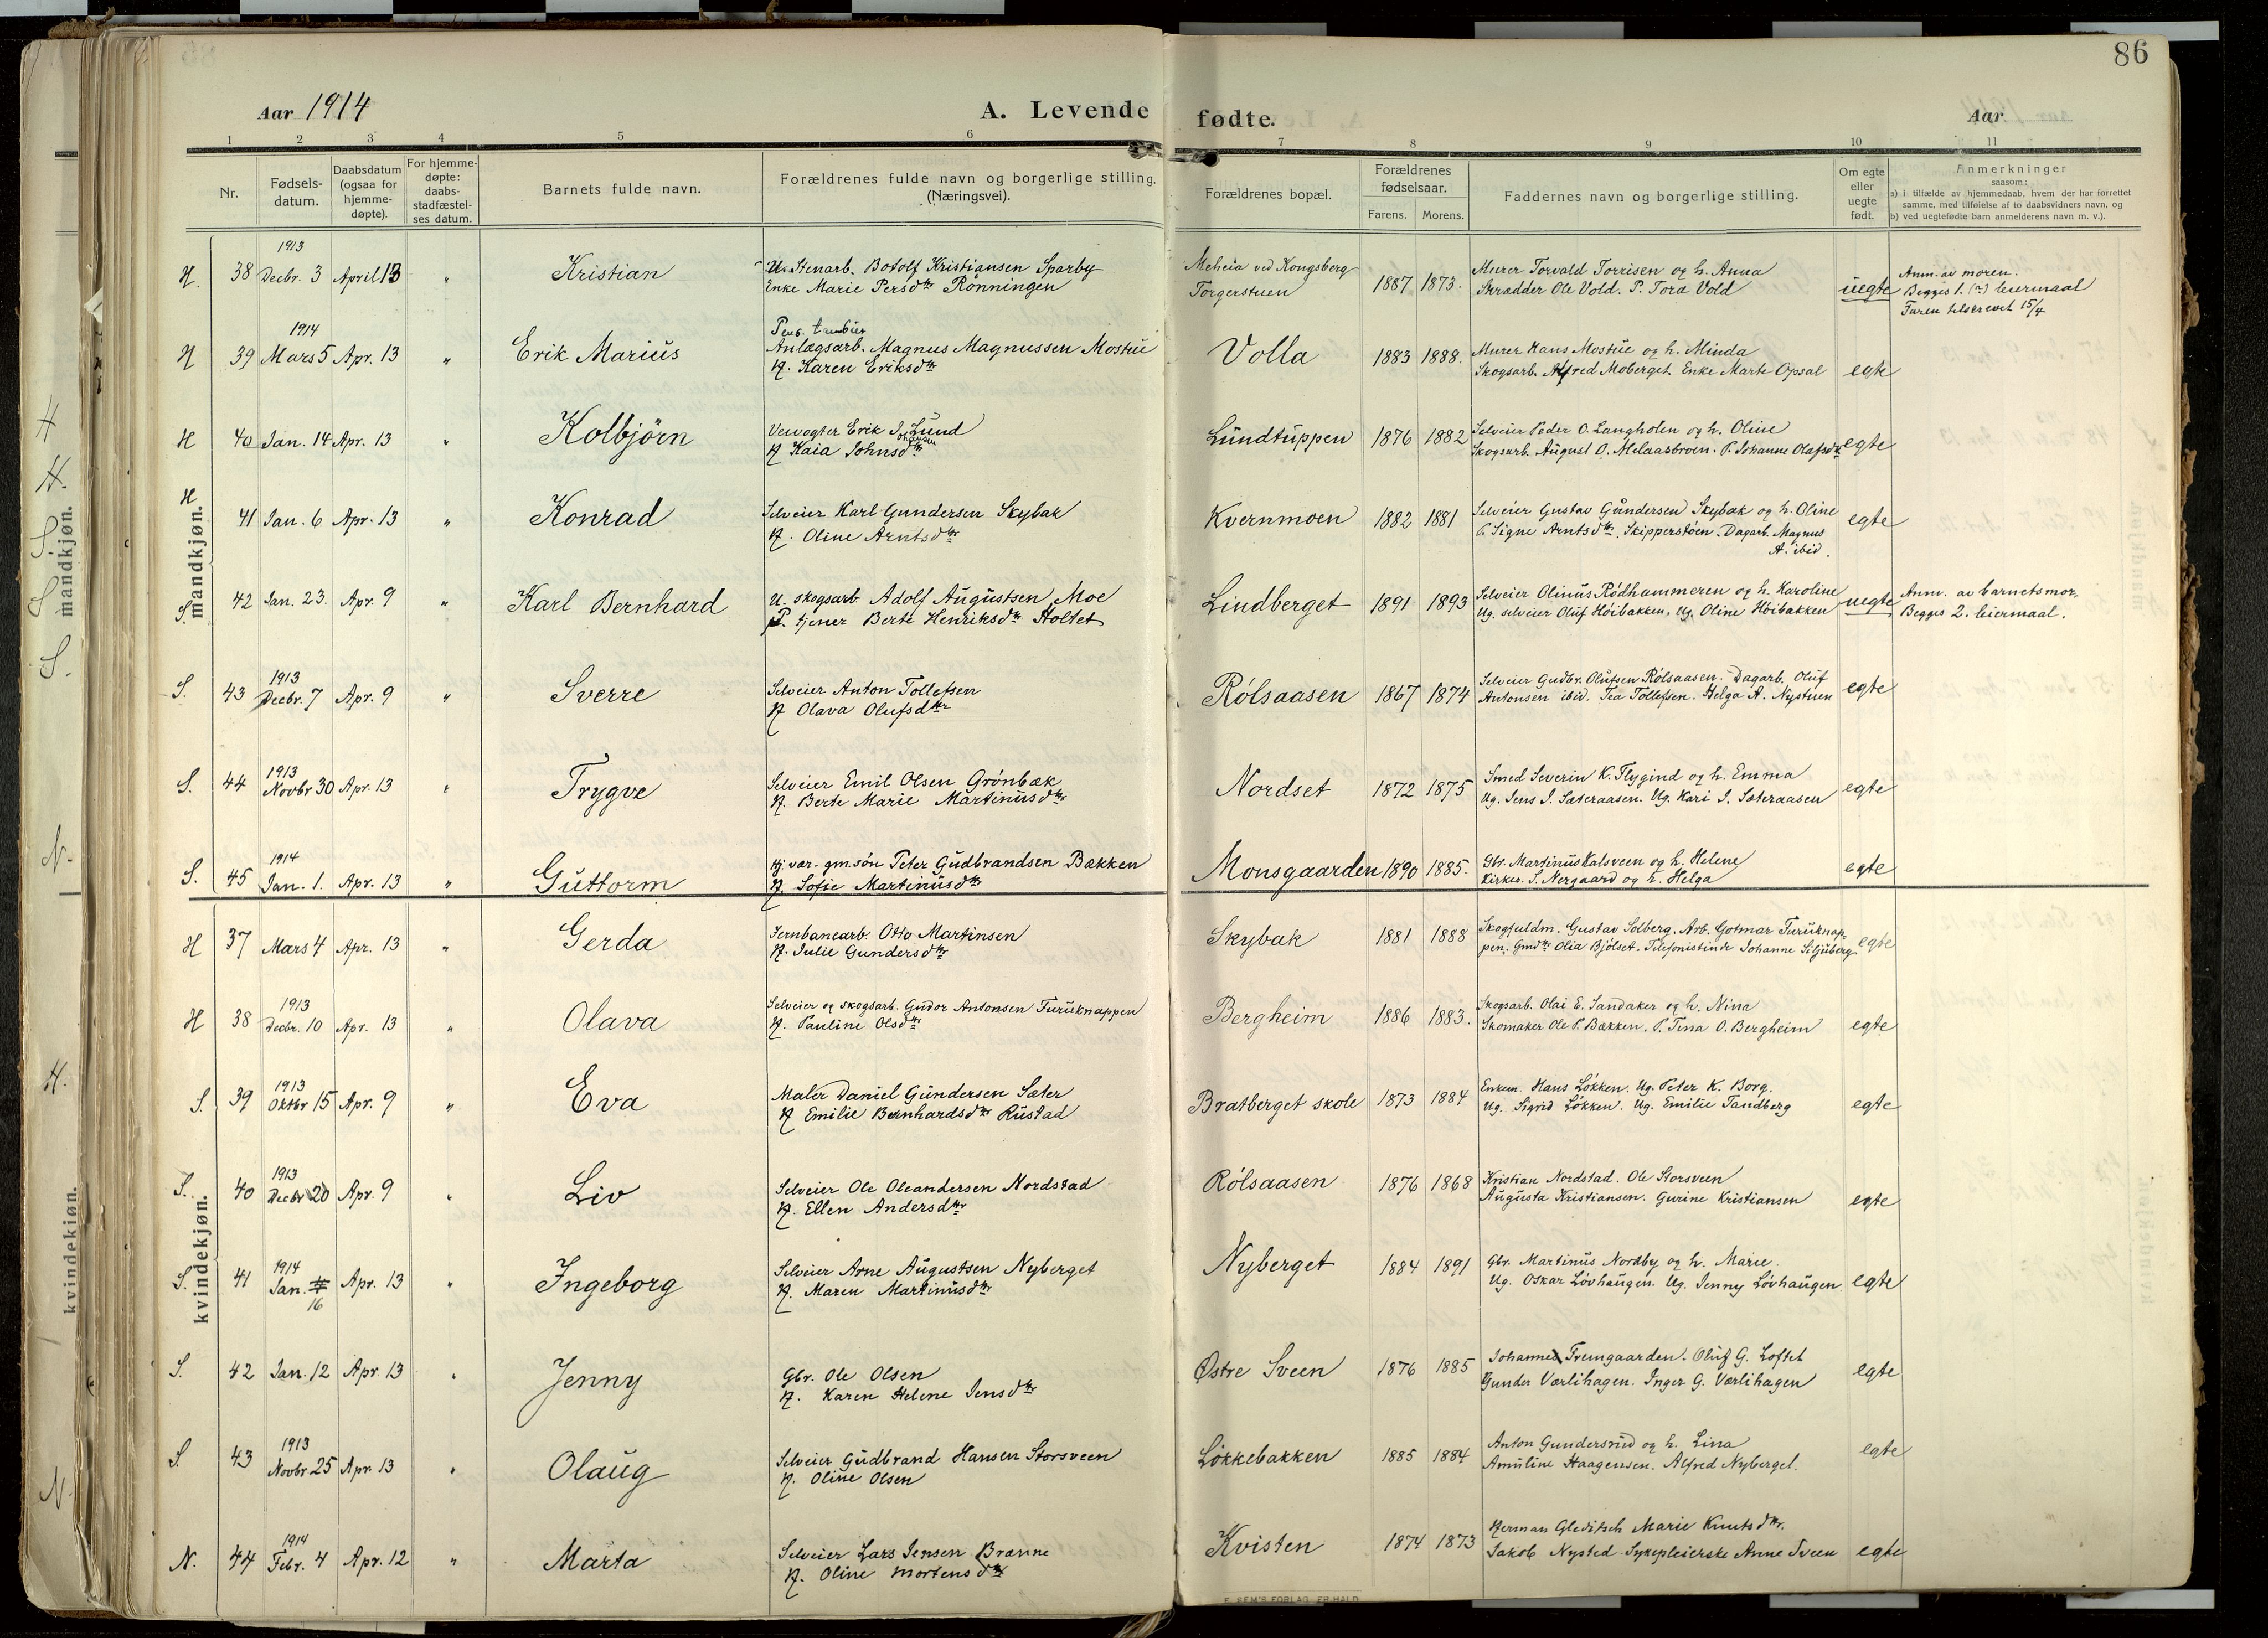 86
Aar 1914
A. Levende fødte.
Aar
1 2 3 4 5 6 7 8 9 10 11
Nr.
Fødsels-
datum.
Daabsdatum
(ogsaa for
hjemme-
døpte).
For hjemme-
døpte:
daabs-
stadfæstel-
ses datum.
Barnets fulde navn.
Forældrenes fulde navn og borgerlige stilling.
(Næringsvei).
Forældrenes bopæl.
Forældrenes
fødselsaar.
Farens. Morens.
Faddernes navn og borgerlige stilling.
Om egte
eller
uegte
født.
Anmerkninger
saasom:
a) i tilfælde av hjemmedaab, hvem der har forrettet
samme, med tilføielse af to daabsvidners navn, og
b) ved uegtefødte barn anmelderens navn m. v.).
mandkjøn.
1913
H. 38 Decbr. 3 April 13 " Kristian
U. Stenarb. Botolf Kristiansen Sparby
Enke Marie Persdtr Rönningen
Meheia ved Kongsberg
Torgerstuen
1887 1873.
Murer Torvald Torrisen og h. Anna
Skrædder Ole Vold. P. Tora Vold
uegte
Anm. av moren.
Begges 1. (?) leiermaal
Faren tilskrevet 15/4
1914
H 39 Mars 5 Apr. 13 " Erik Marius
Anlægsarb. Magnus Magnussen Mostue
H. Karen Eriksdtr
Volla
1883 1888.
Murer Hans Mostue og h. Minda
Skogsarb. Alfred Moberget. Enke Marte Opsal
egte
H 40 Jan. 14 Apr. 13 " Kolbjörn
Veivogter Erik Johansen Lund
H Kaia Johnsdtr.
Lundtuppen
1876 1882
Selveier Peder O. Langholen og h. Oline
Skogsarb. August O. Melaasbroen. P. Johanne Olafsdtr
egte
H 41 Jan. 6 Apr. 13 " Konrad
Selveier Karl Gundersen Skybak
H. Oline Arntsdtr
Kvernmoen
1882 1881
Selveier Gustav Gundersen Skybak og h. Oline
P. Signe Arntsdtr. Skipperstöen. Dagarb. Magnus
A. ibid.
egte
S. 42 Jan. 23. Apr. 9 " Karl Bernhard
U. skogsarb Adolf Augustsen Moe
P. tjener Berte Henriksdtr Holtet
Lindberget
1891 1893
Selveier Olinus Rødhammeren og h. Karoline
Ug. selveier Oluf Höibakken, Ug. Oline Höibakken
uegte
Anm. av barnets mor.
Begges 2. leiermaal.
1913
S. 43 Decbr. 7 Apr. 9 " Sverre
Selveier Anton Tollefsen
H Olava Olufsdtr
Rólsaasen
1867 1874
Selveier Gudbr. Olufsen Rólsaasen. Dagarb. Oluf
Antonsen ibid. Tea Tollefsen. Helga A. Nystuen
egte
1913
S. 44 Novbr 30 Apr. 13 " Trygve
Selveier Emil Olsen Grónbæk
H. Berte Marie Martinusdtr
Nordset
1872 1875
Smed Severin K. Flygind og h. Emma
Ug. Jens J. Sæteraasen. Ug. Kari J. Sæteraasen
egte
1914
S. 45 Jan. 1. Apr. 13 " Guttorm
Hj.vær. gm.søn Peter Gudbrandsen Bakken
H. Sofie Martinusdtr
Monsgaarden
1890 1885.
Gbr. Martinus Kalsveen og h. Helene
Kirkes. S. Nergaard og h. Helga
egte
kvindekjøn.
H 37 Mars 4 Apr. 13 " Gerda
Jernbanearb. Otto Martinsen
H. Julie Gundersdtr
Skybak
1881 1888
Skogfuldm. Gustav Solberg. Arb. Gotmar Turuknap-
pen. Gmdtr Olia Bjölset. Telefonistinde Johanne Siljuberg
egte
1913
H 38 Decbr. 10 Apr. 13 " Olava
Selveier og skogsarb. Gudor Antonsen Turuknappen
H. Pauline Olsdtr
Bergheim
1886 1883.
Skogsarb. Olai E. Sandaker og h. Nina
Skomaker Ole P. Bakken. P. Tina O. Bergheim
egte
1913
S. 39 Oktbr 15 Apr. 9 " Eva
Maler Daniel Gundersen Sæter
H Emilie Bernhardsdtr Rustad
Bratberget skole
1873 1884
Enkem. Hans Lókken. Ug. Peter K. Borg.
Ug. Sigrid Lókken. Ug. Emilie Tandberg
egte
1913
S. 40 Decbr 20 Apr. 9 " Liv
Selveier Ole Oleandersen Nordstad
H. Ellen Andersdtr
Rólsaasen
1876 1868
Kristian Nordstad. Ole Storsveen
Augusta Kristiansen. Gurine Kristiansen
egte
1914
S. 41 Jan. 16 Apr. 13 " Ingeborg
Selveier Arne Augustsen Nyberget
H. Maren Martinusdtr
Nyberget
1884 1891
Gbr. Martinus Nordby og h. Marie.
Ug. Oskar Lóvhaugen. Ug. Jenny Lóvhaugen
egte
S. 42 Jan. 12 Apr. 13 " Jenny
Gbr. Ole Olsen
H. Karen Helene Jensdtr
Østre Sveen
1876 1885
Johannes Fremgaarden. Oluf G. Loftet
GunderVærlihagen. Inger G. Værlihagen
egte
1913
S. 43 Novbr 25 Apr. 13 " Olaug
Selveier Gudbrand Hansen Storsveen
H. Oline Olsen
Lókkebakken
1885 1884
Anton Gundersrud og h. Lina
Amuline Haagensen. Alfred Nyberget.
egte
1914
N. 44 Febr. 4 Apr. 12 " Marta
Selveier Lars Jensen Brænne
H. Oline Mortensdtr
Kvisten
1874 1873
Herman Gleditsch Marie Knutsdtr.
Jakob Nysted. Sykepleierske Anne Sveen
egte